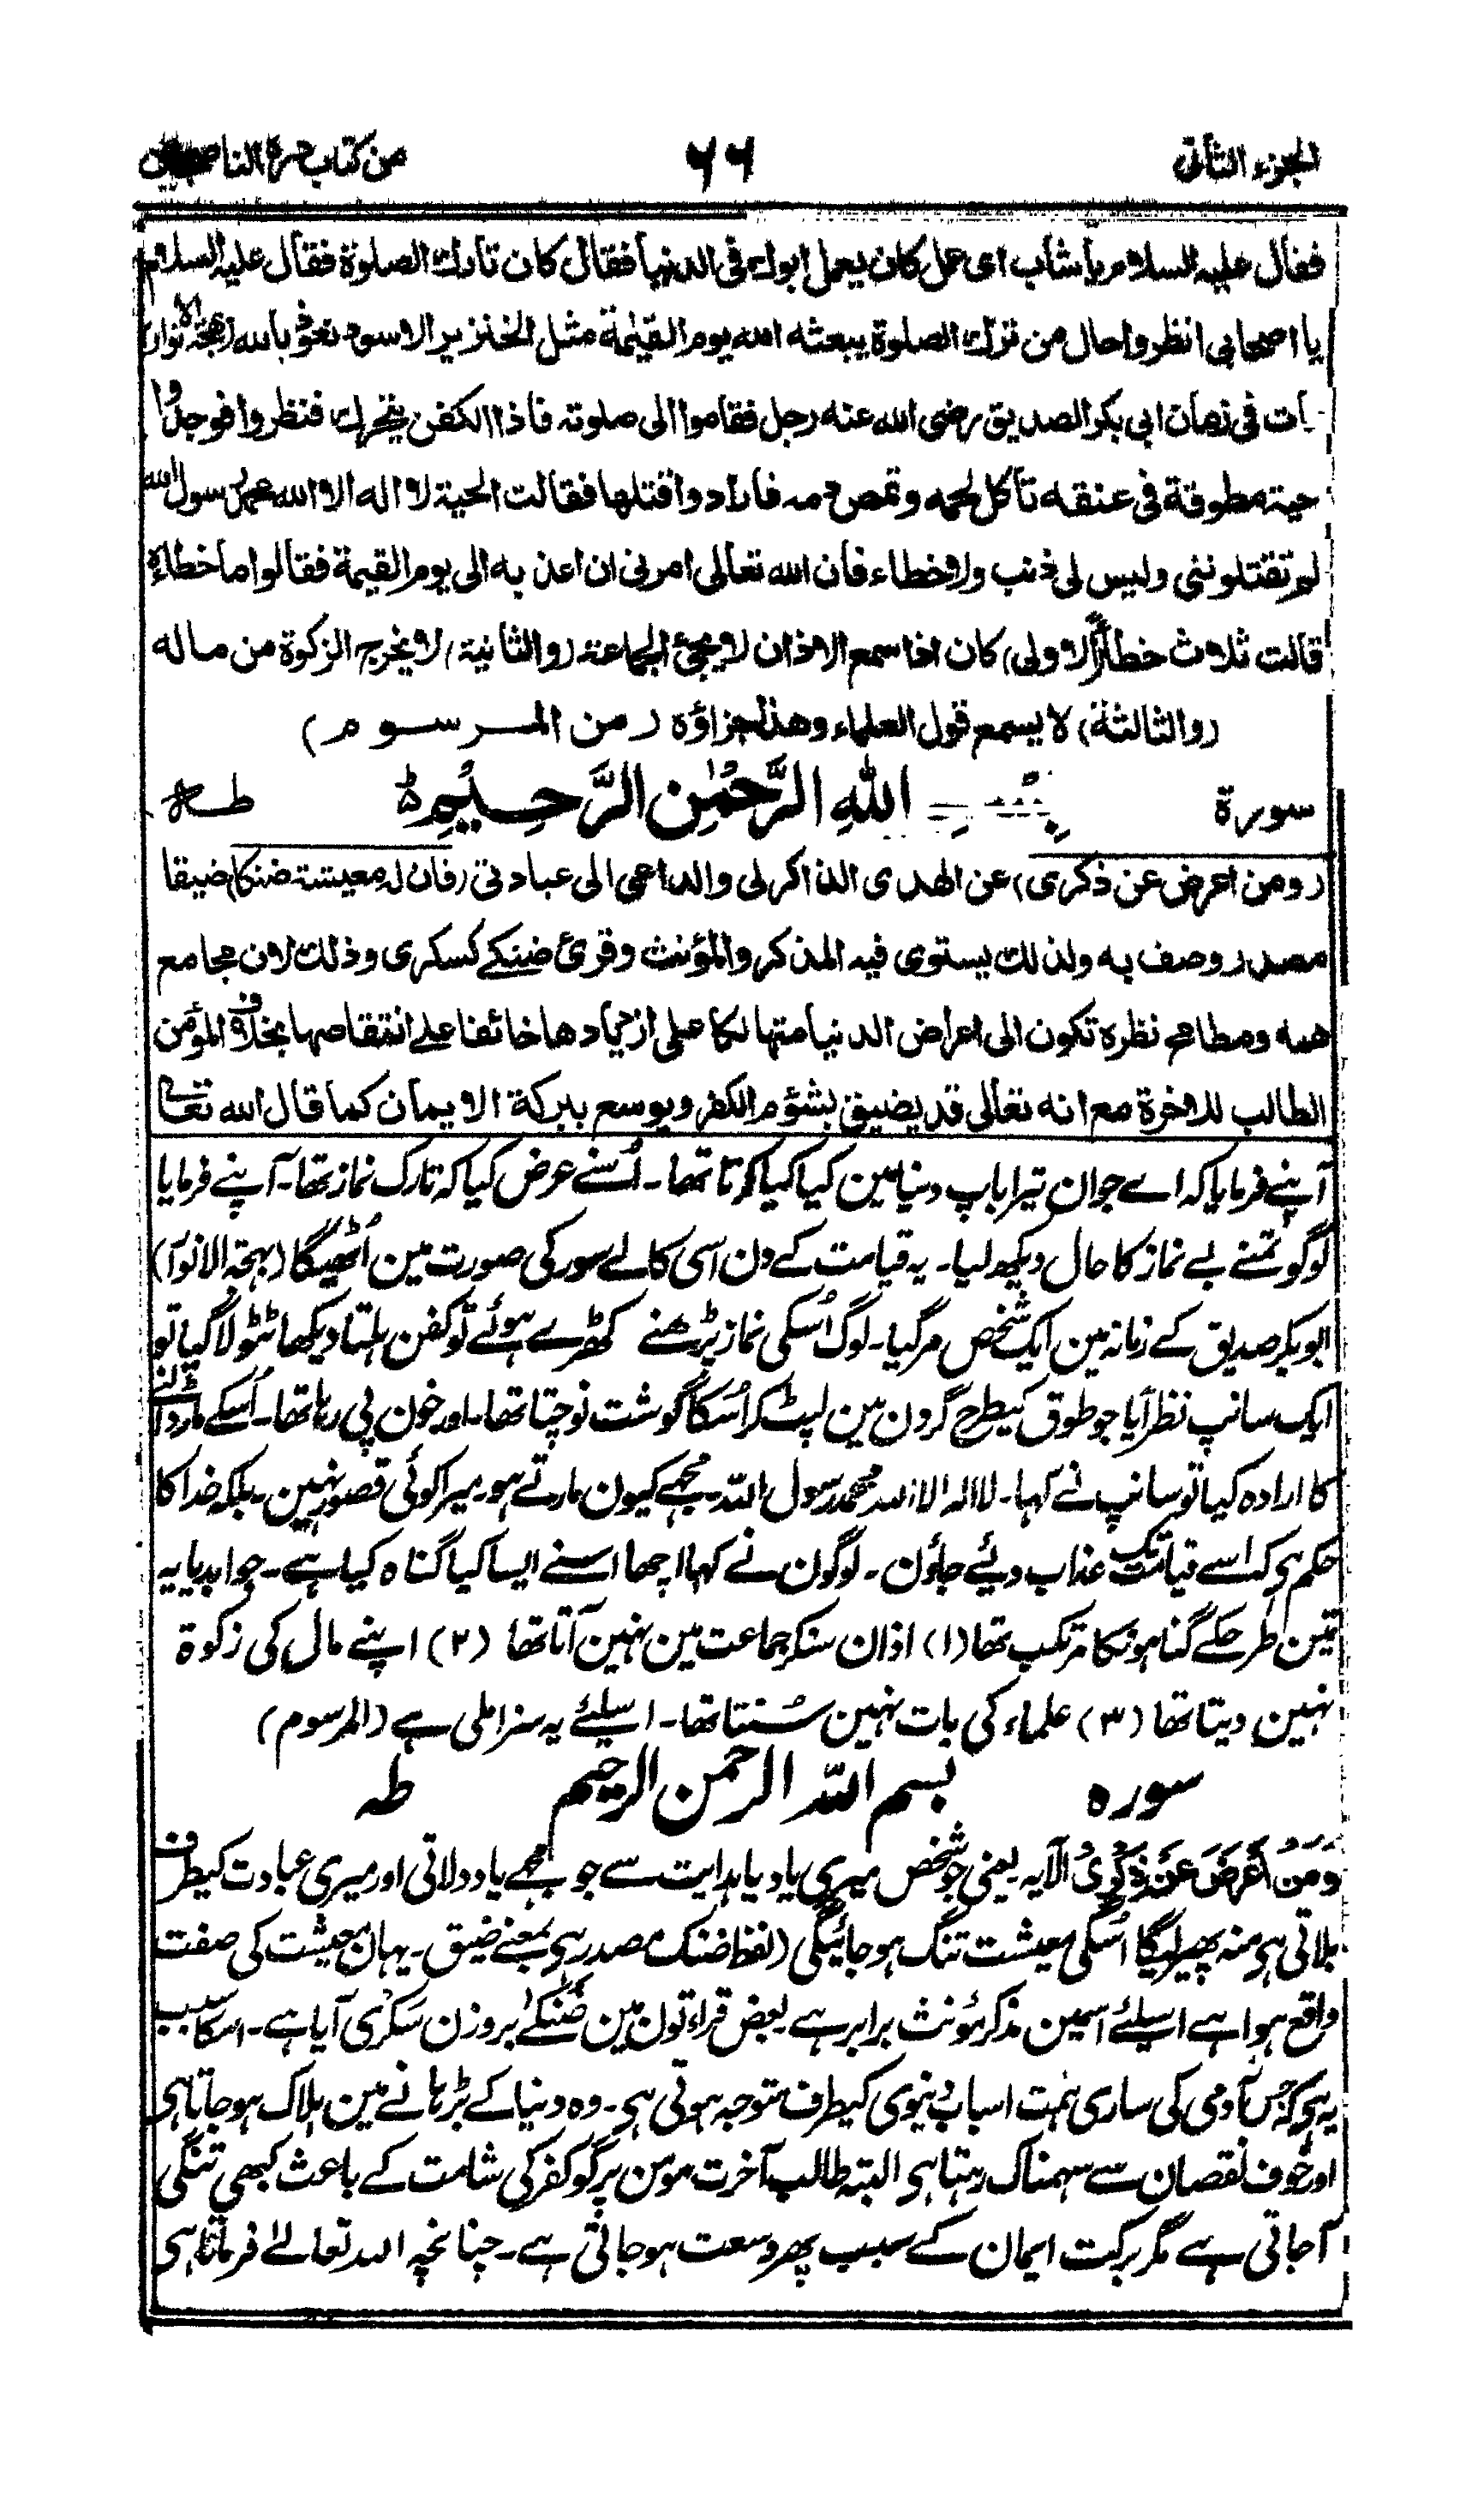 الجزء الثانی ۶۶ من کتاب درة الناصحین
فقال علیہ السلام یا شاب ای عمل کان یعمل ابوك فی الدنیا فقال کان تارك الصلوة فقال علیہ السلام
یا اصحابی انظروا حال من ترك الصلوة یبعثه الله یوم القیٰمة مثل الخنزیر الاسود نعوذ بالله (بهجة الانوار)
مات فی زمان ابی بکر الصدیق رضی الله عنه رجل فقاموا الی صلوته فاذا الکفن یتحرك فنظروا فوجدوا
حیة مطوقة فی عنقه تأکل لحمه وتمص دمه فارادوا قتلها فقالت الحیة لا اله الا الله محمد رسول الله
لم تقتلوننی ولیس لی ذنب ولا خطاء فان الله تعالی امرنی ان اعذبه الی یوم القیمة فقالوا ما خطاءه
قالت ثلاث خطایا (الاولی) کان اذا سمع الاذان لا یجئ الجماعة (والثانیة) لا یخرج الزکوة من ماله
(والثالثة) لا یسمع قول العلماء وهذا جزاؤه (من المرسوم)
سورة بِسْمِ اللهِ الرَّحْمٰنِ الرَّحِیْمِ طه
(ومن اعرض عن ذکری) عن الهدی الذاکر لی والداعی الی عبادتی (فان له معیشة ضنکا) ضیقا
مصدر وصف به ولذلك یستوی فیه المذکر والمؤنث وقرئ ضنکی کسکری وذلك لان مجامع
همه ومطامح نظره تکون الی اعراض الدنیا متهالکا علی ازدیادها خائفا علی انتقاصها بخلاف المؤمن
الطالب للاخرة مع انه تعالی قد یضیق بشؤم الکفر ویوسع ببرکة الایمان کما قال الله تعالی
آپنے فرمایا کہ اے جوان تیرا باپ دنیا مین کیا کیا کرتا تھا۔ اُسنے عرض کیا کہ تارک نماز تھا۔ آپنے فرمایا
لوگو تمنے بے نماز کا حال دیکھ لیا۔ یہ قیامت کے دن اسی کالے سور کی صورت مین اُٹھیگا (بہجۃ الانوار)
ابوبکر صدیق کے زمانہ مین ایک شخص مر گیا۔ لوگ اُسکی نماز پڑھنے کھڑے ہوئے تو کفن ہلتا دیکھا ٹٹولا گیا تو
ایک سانپ نظر آیا جو طوق کیطرح گردن مین لپٹ کر اُسکا گوشت نوچتا تھا۔ اور خون پی رہا تھا۔ اُسکے مار ڈالنے
کا ارادہ کیا تو سانپ نے کہا۔ لا الہ الا اللہ محمد رسول اللہ۔ مجھے کیون مارتے ہو۔ میرا کوئی قصور نہین۔ بلکہ خدا کا
حکم ہی کہ اسے قیامت تک عذاب دئیے جاؤن۔ لوگون نے کہا اچھا اسنے ایسا کیا گناہ کیا ہے۔ جوابدیا یہ
تین طرحکے گناہونکا مرتکب تھا (۱) اذان سنکر جماعت مین نہین آتا تھا (۲) اپنے مال کی زکوۃ
نہین دیتا تھا (۳) علماء کی بات نہین سُنتا تھا۔ اسلیئے یہ سزا ملی ہے (المرسوم)
سورہ بسم اللہ الرحمن الرحیم طہ
وَمَنْ اَعْرَضَ عَنْ ذِکْرِیْ الآیہ یعنی جو شخص میری یاد یا ہدایت سے جو مجھے یاد دلاتی اور میری عبادت کیطرف
بلاتی ہی منہ پھیر لیگا اُسکی معیشت تنگ ہو جائیگی (لفظ ضنک مصدر ہی بمعنے ضیق۔ یہان معیشت کی صفت
واقع ہوا ہے اسلیئے اسمین مذکر مؤنث برابر ہے۔ بعض قراءتون مین ضَنْکیٰ بروزن سَکْرٰی آیا ہے۔ اسکا سبب
یہ ہی کہ جس آدمی کی ساری ہمت اسباب دنیوی کیطرف متوجہ ہوتی ہی۔ وہ دنیا کے بڑہانے مین ہلاک ہو جاتا ہی
اور خوف نقصان سے سہمناک رہتا ہی البتہ طالب آخرت مومن پر گو کفر کی شامت کے باعث کبھی تنگی
آجاتی ہے مگر برکت ایمان کے سبب پھر وسعت ہو جاتی ہے۔ چنانچہ اللہ تعالےٰ فرماتا ہی